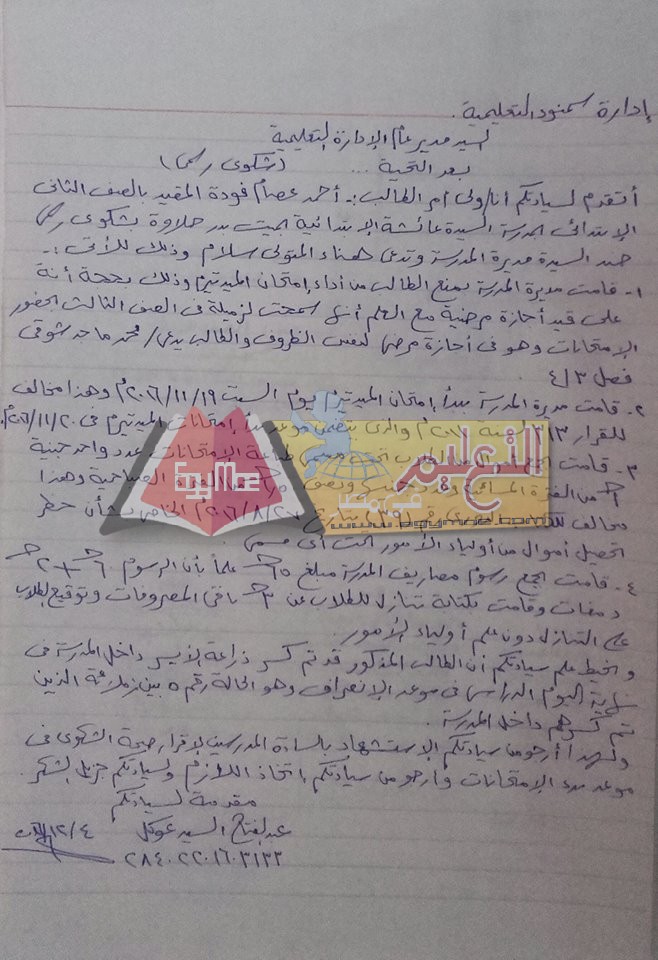 إدارة سمنود التعليمية.
السيد مدير عام الإدارة التعليمية
بعد التحية ... (شكوى رسمية)
أتقدم لسيادتكم أنا ولي أمر الطالب :- أحمد عصام فودة المقيد بالصف الثاني
الإبتدائى بمدرسة السيدة عائشة الإبتدائية بميت بدر حلاوة بشكوى رسمية
ضد السيدة مديرة المدرسة وتدعى هناء المتولى سلام وذلك للأتى :-
١- قامت مديرة المدرسة بمنع الطالب من أداء إمتحان الميدتيرم وذلك بحجة أنة
على قيد أجازة مرضية مع العلم أنها سمحت لزميلة فى الصف الثالث بحضور
الإمتحانات وهو فى أجازة مرضى لنفس الظروف والطالب يدعى / محمد ماجد شوقى
فصل ٤/٣
٢- قامت مديرة المدرسة ببدأ إمتحان الميدتيرم يوم السبت ٢٠١٦/١١/١٩م وهذا مخالف
للقرار ٣١٣ لسنة م والذى يتضمن موعد بدأ إمتحانات الميدتيرم فى ٢٠١٦/١١/٢٠م
٣- قامت طباعة الإمتحانات عدد واحد جنية
من الفترة المسائية الفترة الصباحية وهذا
مخالف رقم بتاريخ بشأن حظر
تحصيل أموال من أولياء الأمور تحت أى مسمى.
٤- قامت بجمع رسوم مصاريف المدرسة مبلغ ٦٥ علماً بأن الرسوم ٦٠ + ٢
دمغات وقامت بكتابة تنازل للطلاب عن ٣ باقى المصروفات وتوقيع الطلاب
على التنازل دون علم أولياء الأمور.
ونحيط علم سيادتكم أن الطالب المذكور قد تم كسر ذراعة الأيسر داخل المدرسة فى
نهاية اليوم الدراسى فى موعد الإنصراف وهو الحالة رقم ٥ بين زملائة الذين
تم كسرهم داخل المدرسة.
ولهذا أرجو من سيادتكم الإستشهاد بالسادة المدرسين لإقرار صحة الشكوى فى
موعد بدء الإمتحانات وأرجو من سيادتكم إتخاذ اللازم ولسيادتكم جزيل الشكر.
مقدمة لسيادتكم
عبدالفتاح السيد عوكل
٢٨٤٠٢٢٠١٦٠٣١٣٣
التعليم
فى مصر
www.egymoe.com